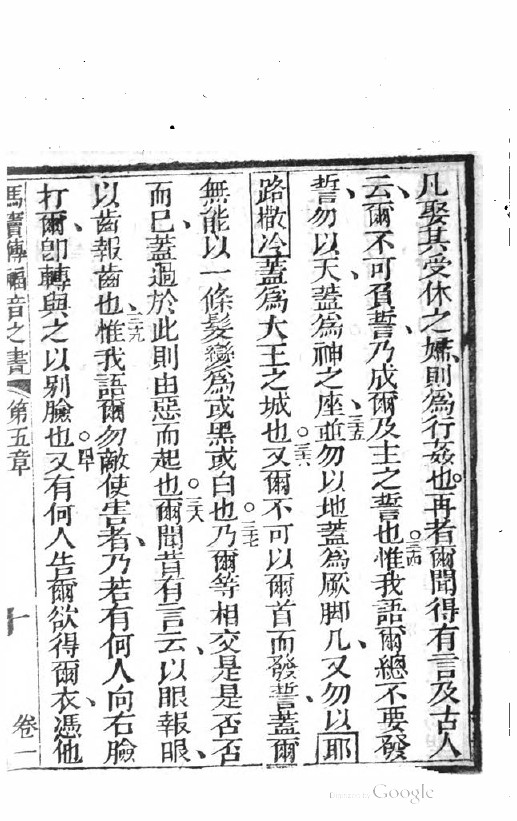 凡娶其受休之婦則爲行姦也○再者爾聞得有言及古人
云爾不可負誓乃成爾及主之誓也○三四惟我語爾總不要發
誓勿以天蓋爲神之座○三五並勿以地蓋爲厥脚几又勿以耶
路撒冷蓋爲大王之城也○三六又爾不可以爾首而發誓蓋爾
無能以一條髮變爲或黑或白也○三七乃爾等相交是是否否
而已蓋過於此則由惡而起也○三八爾聞昔有言云以眼報眼
以齒報齒也三九惟我語爾勿敵使害者乃若有何人向右臉
打爾卽轉與之以别臉也○四十又有何人告爾欲得爾衣憑他
馬寶傳福音之書 第五章 十 卷一
Google